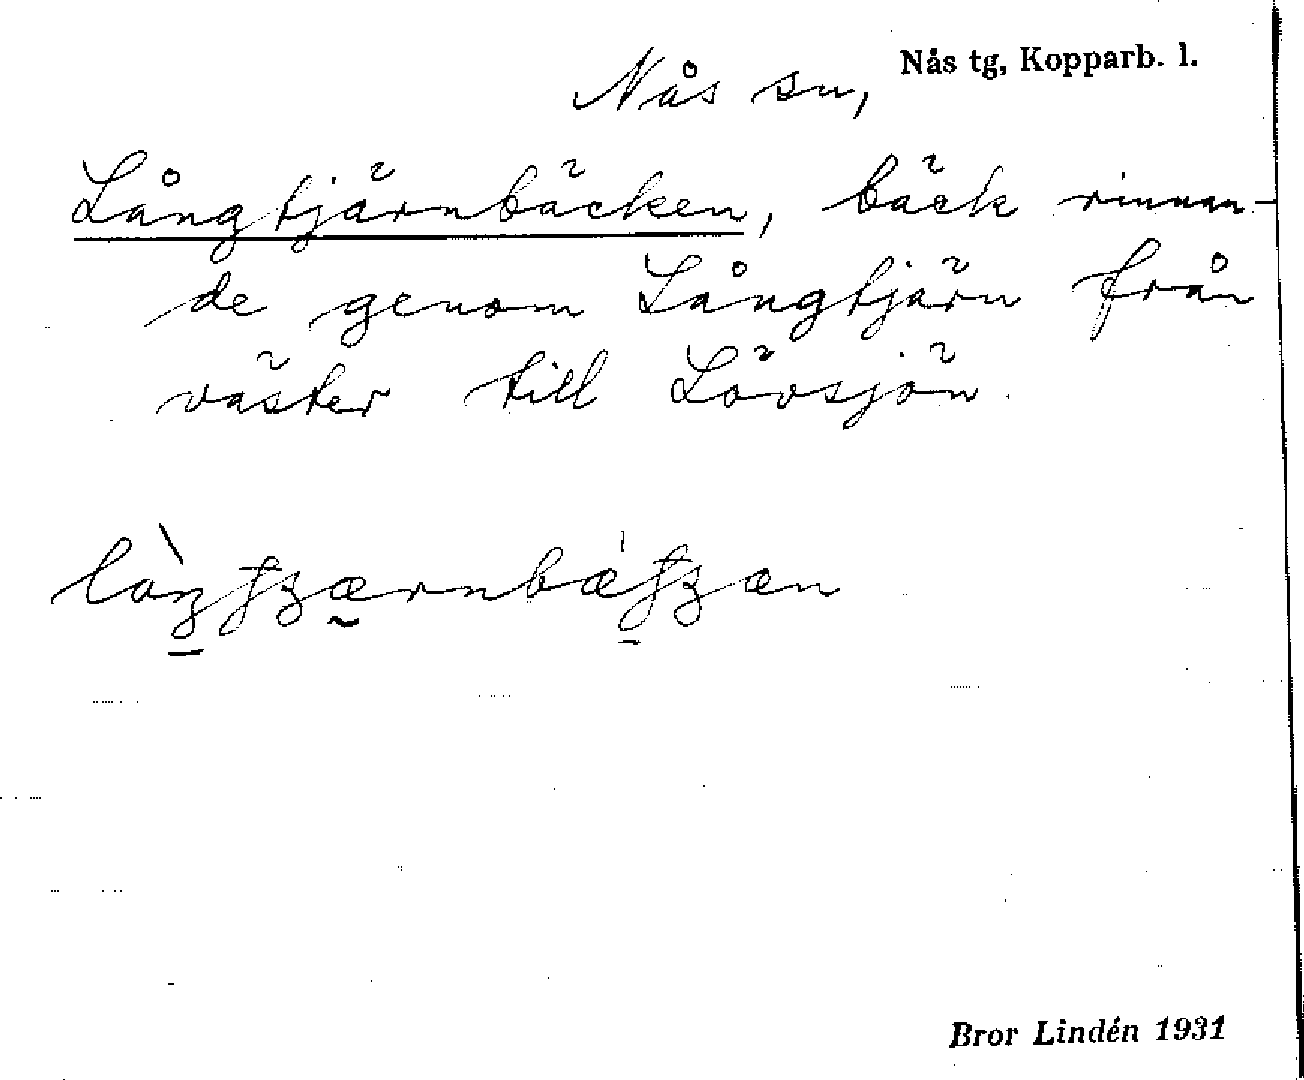 Nås tg, Kopparb. l.
Nås sn,
Långtjärnbäcken, bäck rinnan-
de genom Långtjärn från
väster till Lövsjön.
Bror Lindén 1931